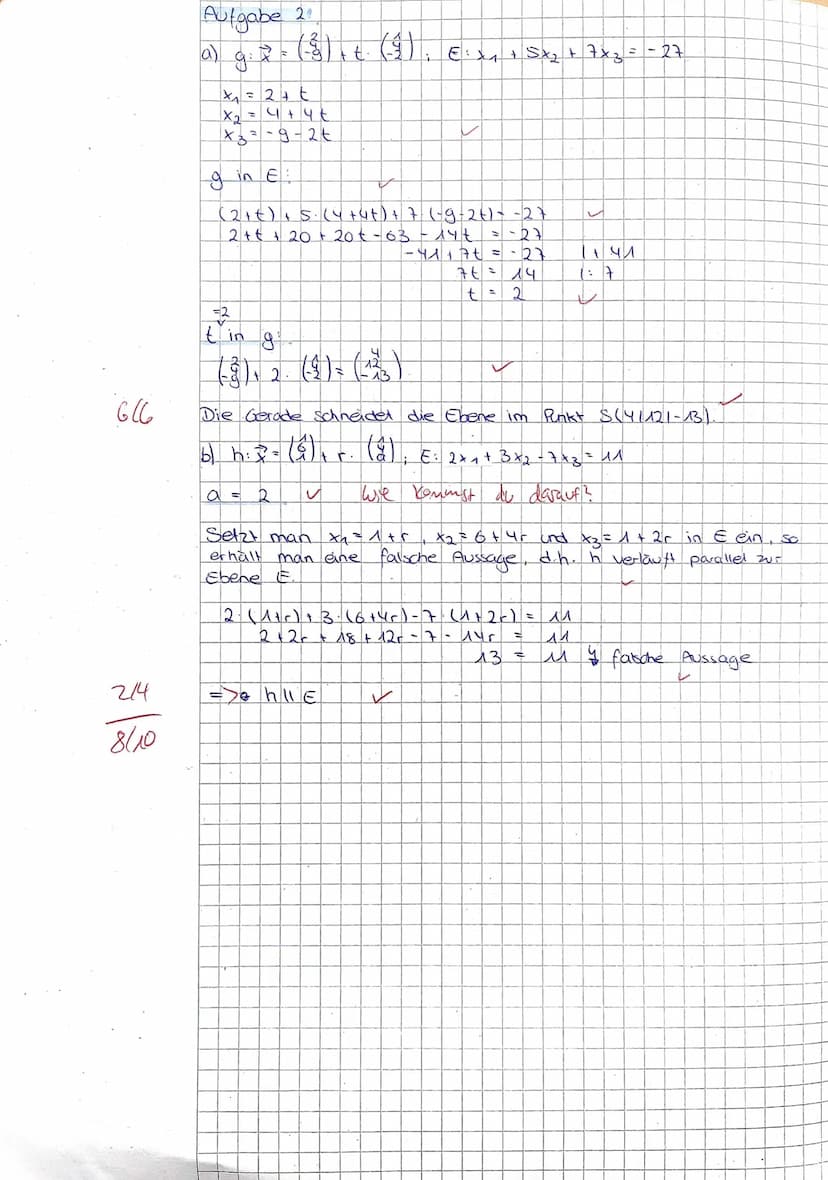 Aufgabe 2:
a) g: x⃗ = (2 4 -9) + t · (1 4 -2) ; E: x₁ + 5x₂ + 7x₃ = -27
x₁ = 2 + t
x₂ = 4 + 4t
x₃ = -9 - 2t ✓
g in E: ✓
(2+t) + 5·(4+4t) + 7·(-9-2t) = -27 ✓
2+t + 20 + 20t - 63 - 14t = -27
-41 + 7t = -27 | + 41
7t = 14 | : 7
t = 2 ✓
=2
t in g:
(2 4 -9) + 2 · (1 4 -2) = (4 12 -13) ✓
6/6 Die Gerade schneidet die Ebene im Punkt S(4|12|-13). ✓
b) h: x⃗ = (1 6 1) + r · (1 4 a) ; E: 2x₁ + 3x₂ - 7x₃ = 11
a = 2 ✓ Wie kommst du darauf?
Setzt man x₁ = 1+r, x₂ = 6+4r und x₃ = 1+2r in E ein, so
erhält man eine falsche Aussage, d.h. h verläuft parallel zur
Ebene E. ✓
2·(1+r) + 3·(6+4r) - 7·(1+2r) = 11
2+2r + 18 + 12r - 7 - 14r = 11
13 = 11 ↯ falsche Aussage ✓
2/4 => h || E ✓
8/10